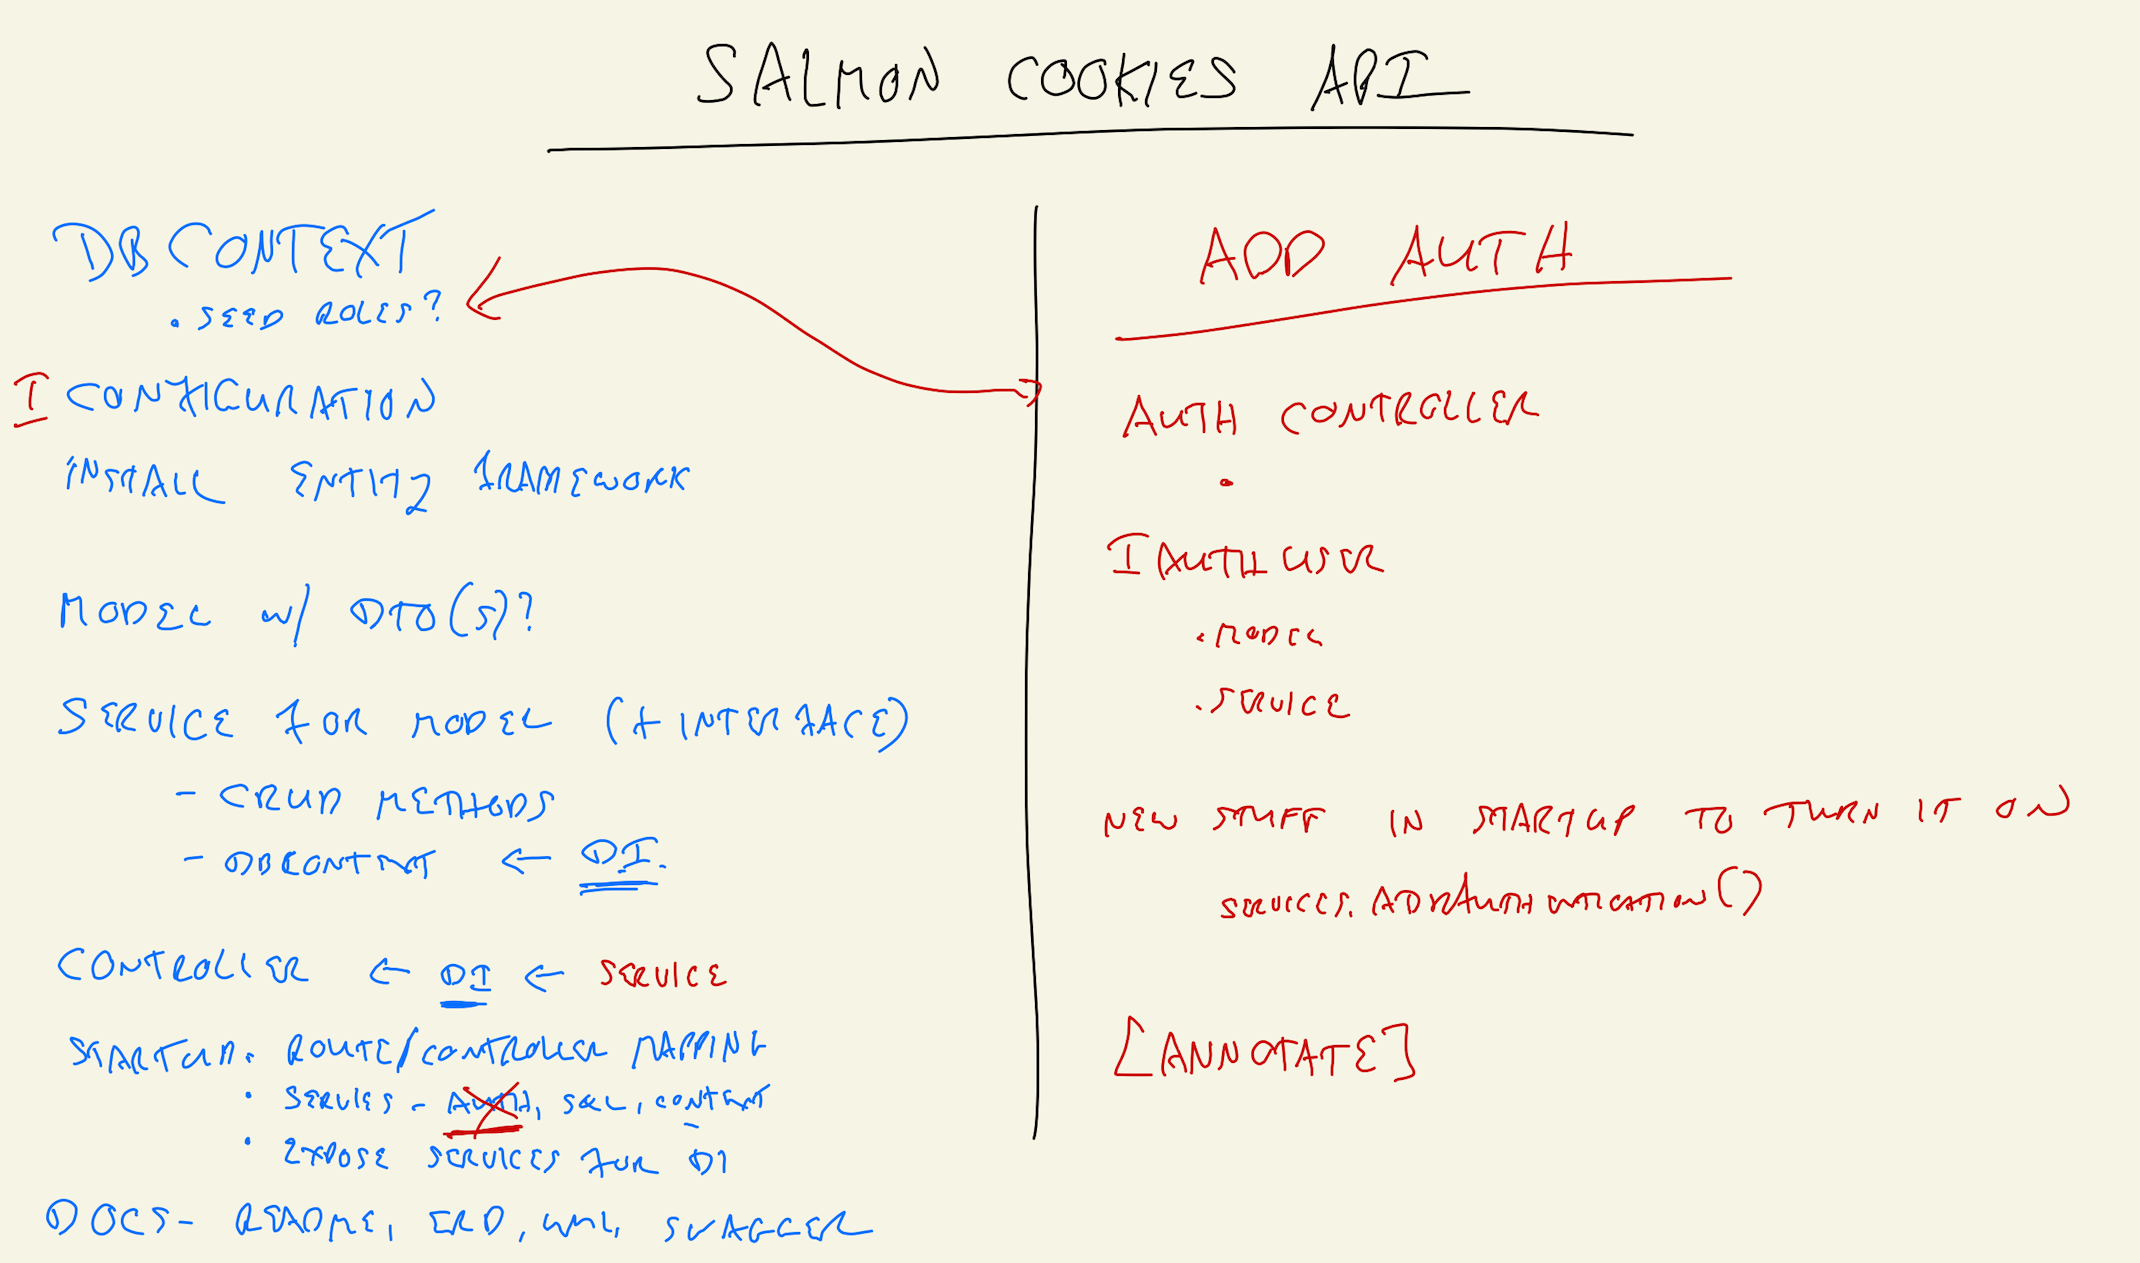 SALMON COOKIES API
DB CONTEXT
. SEED ROLES?
I CONFIGURATION
INSTALL ENTITY FRAMEWORK
MODEL w/ DTO(S)?
SERVICE FOR MODEL (+ INTERFACE)
- CRUD METHODS
- DBCONTEXT ← DI.
CONTROLLER ← DI ← SERVICE
STARTUP. ROUTE/CONTROLLER MAPPING
· SERVIES - AUTH, SQL, CONTEXT
· EXPOSE SERVICES FOR DI
DOCS - README, ERD, UML, SWAGGER
ADD AUTH
AUTH CONTROLLER
•
I AUTH USER
. MODEL
. SERVICE
NEW STUFF IN STARTUP TO TURN IT ON
SERVICES. ADDAUTHENTICATION()
[ANNOTATE]